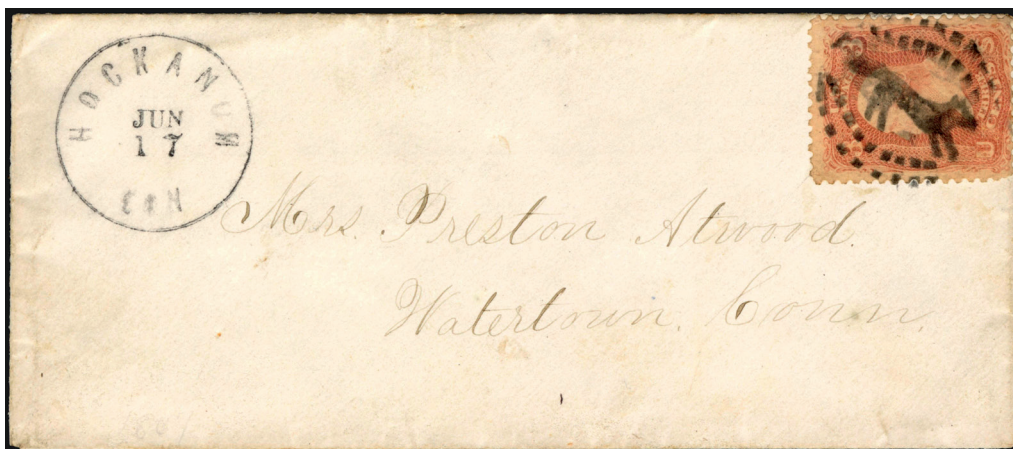 HOCKANUM
JUN
17
CON
Mrs. Preston Atwood.
Watertown, Conn.